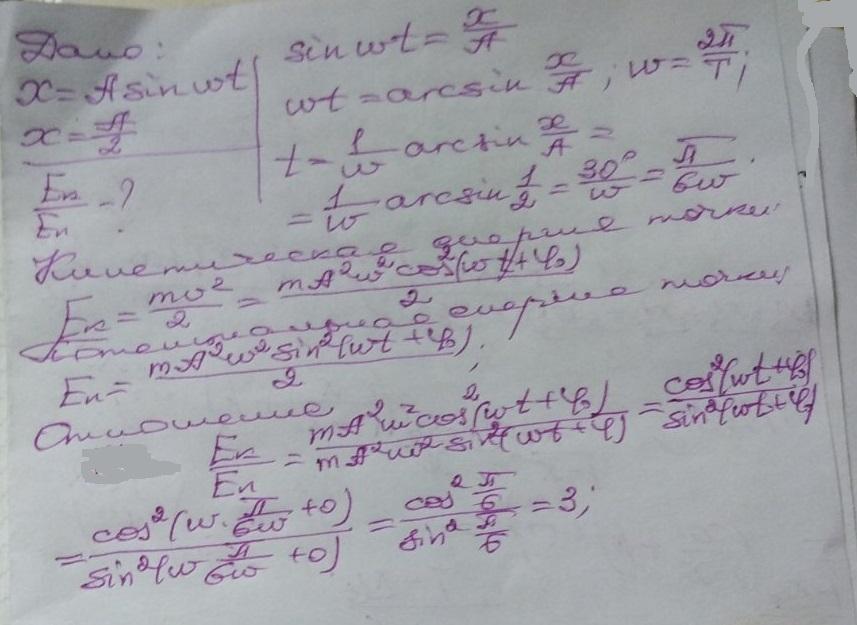 Дано:
x = A sin wt
x = A/2
Eк/Eп - ?
sin wt = x/A
wt = arcsin x/A ; w = 2π/T ;
t = 1/w arcsin x/A =
= 1/w arcsin 1/2 = 30°/w = π/6w .
Кинетическая энергия точки:
Eк = mv²/2 = mA²w²cos²(wt+φ₀)/2
Потенциальная энергия точки,
Eп = mA²w² sin²(wt+φ₀)/2 ;
Отношение
Eк/Eп = mA²w²cos²(wt+φ₀)/mA²w² sin²(wt+φ) = cos²(wt+φ₀)/sin²(wt+φ₀)
= cos²(w·π/6w +0)/sin²(w π/6w +0) = cos² π/6/sin² π/6 = 3;